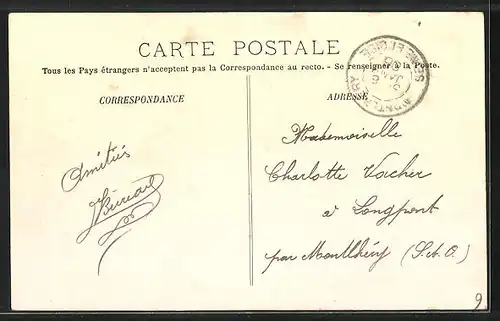 CARTE POSTALE
Tous les Pays étrangers n'acceptent pas la Correspondance au recto. - Se renseigner à la Poste.
CORRESPONDANCE
ADRESSE
MONTLHERY
SEINE ET OISE
Amitiés
Mademoiselle
Charlotte Vacher
à Longpont
par Montlhéry (S. & O.)
9